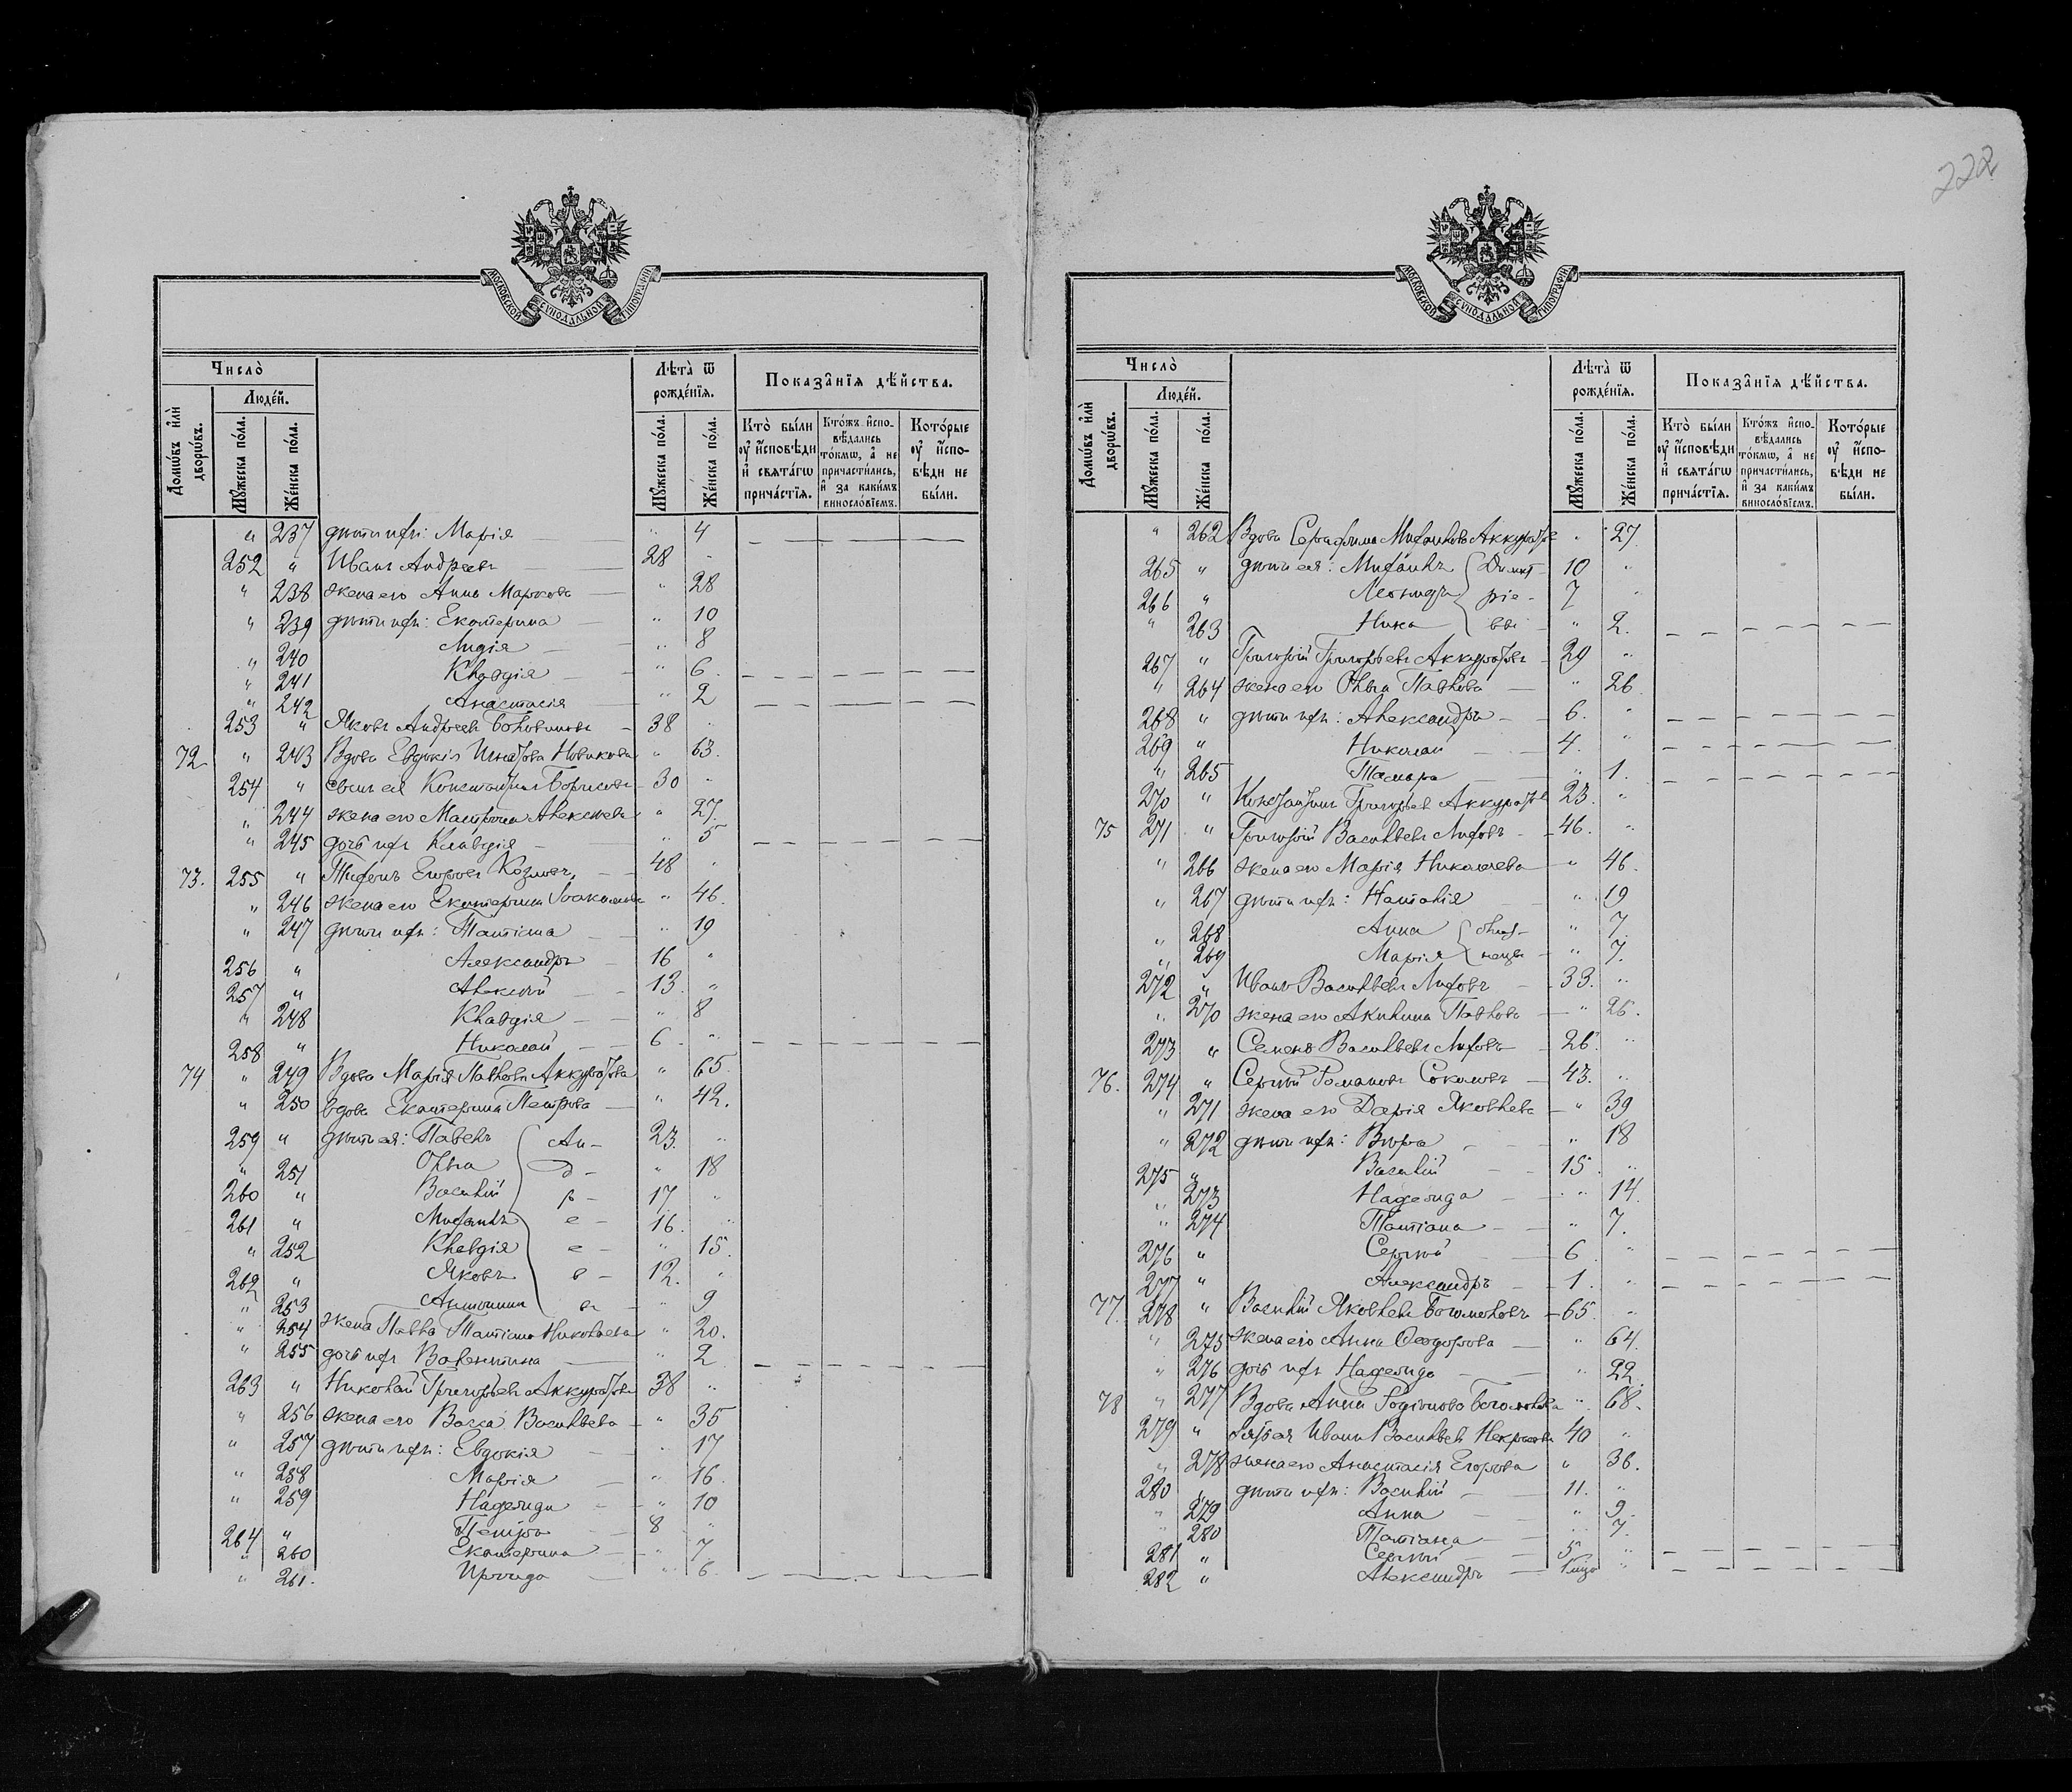 222
МОСКОВСКОЙ СѴНОДАЛЬНОЙ ТИПОГРАФІИ
Число̀
Людéй.
Домѡ́въ и҆лѝ дворѡ́въ.
Мꙋ́жеска по́ла.
Же́нска по́ла.
Лѣта̀ ѿ рожде́нїѧ.
Мꙋ́жеска по́ла.
Же́нска по́ла.
Показа̑нїѧ дѣ́йства.
Кто̀ бы́ли оу҆ и҆́споведи и҆ свѧта́гѡ прича́стїѧ.
Кто́жъ и҆спо­вѣ́дались то́кмѡ, а҆ не причасти́лись, и҆ за каки́мъ винословїемъ.
Кото́рые оу҆ и҆́спо­вѣди не бы́ли.
" 237 дѣти ихъ: Марія " 4
252 " Иванъ Андреевъ 28 "
" 238 жена его Анна Маркова " 28
" 239 дѣти ихъ: Екатерина " 10
" 240 Лидія " 8
" 241 Клавдія " 6
" 242 Анастасія " 2
253 " Яковъ Андреевъ 38 "
72 " 243 Вдова Евдокія Игнатова Новикова " 63.
254 " сынъ ея Константинъ Борисовъ 30 "
" 244 жена его Матрона Алексѣева " 27.
" 245 дочь ихъ Клавдія " 5
73. 255 " Тихонъ Егоровъ Козловъ 48 "
" 246 жена его Екатерина Іоакимова " 46.
" 247 дѣти ихъ: Татіана " 19
256 " Александръ 16 "
257 " Алексѣй 13. "
" 248 Клавдія " 8
258 " Николай 6 "
74 " 249 Вдова Марія Павлова Аккуратова " 65.
" 250 вдова Екатерина Петрова " 42.
259 " дѣти ея: Павелъ Ан- 23. "
" 251 Ольга д- " 18
260 " Василій р- 17 "
261 " Михаилъ е- 16. "
" 252 Клавдія е- " 15.
262 " Яковъ в- 12. "
" 253 Антонина ы " 9
" 254 жена Павла Татіана Николаева " 20.
" 255 дочь ихъ Валентина " 2
263 " Николай Григорьевъ Аккуратовъ 38 "
" 256 жена его Васса Васильева " 35
" 257 дѣти ихъ: Евдокія " 17
" 258 Марія " 16.
" 259 Надежда " 10
264 " Петръ 8 "
" 260 Екатерина " 7
" 261. Ираида " 6.
МОСКОВСКОЙ СѴНОДАЛЬНОЙ ТИПОГРАФІИ
Число̀
Людéй.
Домѡ́въ и҆лѝ дворѡ́въ.
Мꙋ́жеска по́ла.
Же́нска по́ла.
Лѣта̀ ѿ рожде́нїѧ.
Мꙋ́жеска по́ла.
Же́нска по́ла.
Показа̑нїѧ дѣ́йства.
Кто̀ бы́ли оу҆ и҆́споведи и҆ свѧта́гѡ прича́стїѧ.
Кто́жъ и҆спо­вѣ́дались то́кмѡ, а҆ не причасти́лись, и҆ за каки́мъ винословїемъ.
Кото́рые оу҆ и҆́спо­вѣди не бы́ли.
" 262 Вдова Серафима Михаилова Аккуратова " 27.
265 " дѣти ея: Михаилъ Димит- 10 "
266 " Леонидъ ріе- 7 "
" 263 Нина вы " 2.
267 " Григорій Григорьевъ Аккуратовъ 29 "
" 264 жена его Ольга Павлова " 26.
268 " дѣти ихъ: Александръ 6. "
269 " Николай 4. "
" 265 Тамара " 1.
270 " Константинъ Григорьевъ Аккуратовъ 23. "
75 271 " Григорій Васильевъ Лиховъ 46. "
" 266 жена его Марія Николаева " 46.
" 267 дѣти ихъ: Наталія " 19
" 268 Анна близ- " 7.
" 269 Марія нецы " 7.
272 " Иванъ Васильевъ Лиховъ 33. "
" 270 жена его Акилина Павлова " 26.
273 " Семенъ Васильевъ Лиховъ 26. "
76. 274 " Сергѣй Романовъ Соколовъ 43. "
" 271 жена его Дарія Яковлева " 39
" 272 дѣти ихъ: Вѣра " 18
275 " Василій 15. "
" 273 Надежда " 14.
" 274 Татіана " 7.
276 " Сергѣй 6 "
277 " Александръ 1. "
77. 278 " Василій Яковлевъ Богомоловъ 65. "
" 275 жена его Анна Ѳеодорова " 64.
" 276 дочь ихъ Надежда " 22.
78 " 277 Вдова Анна Родіонова Богомолова " 68.
279 " зять ея Иванъ Васильевъ Некрасовъ 40 "
" 278 жена его Анастасія Егорова " 36.
280 " дѣти ихъ: Василій 11. "
" 279 Анна " 9.
" 280 Татіана " 7.
281 " Сергѣй 5. "
282 " Александръ "